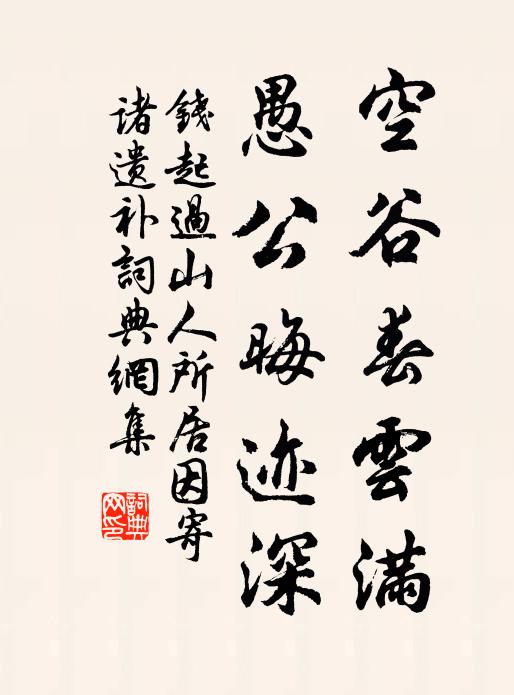 空谷春雲滿
愚公晦迹深
錢起過山人所居因寄
诸遗补詞典網集
詞典网印